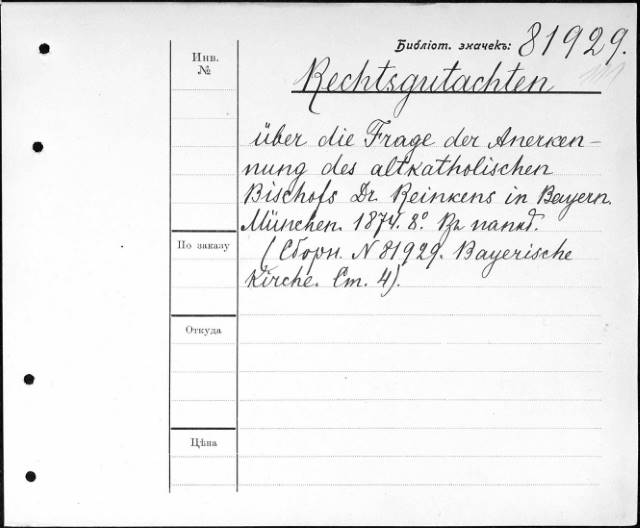 Библіот. значекъ: 81929.
Инв.
№
Rechtsgutachten
über die Frage der Anerken-
nung des altkatholischen
Bischofs Dr. Reinkens in Bayern.
München. 1874. 8º. Въ папкѣ.
По заказу
(Сборн. N 81929. Bayerische
Kirche. Ст. 4).
Откуда
Цѣна